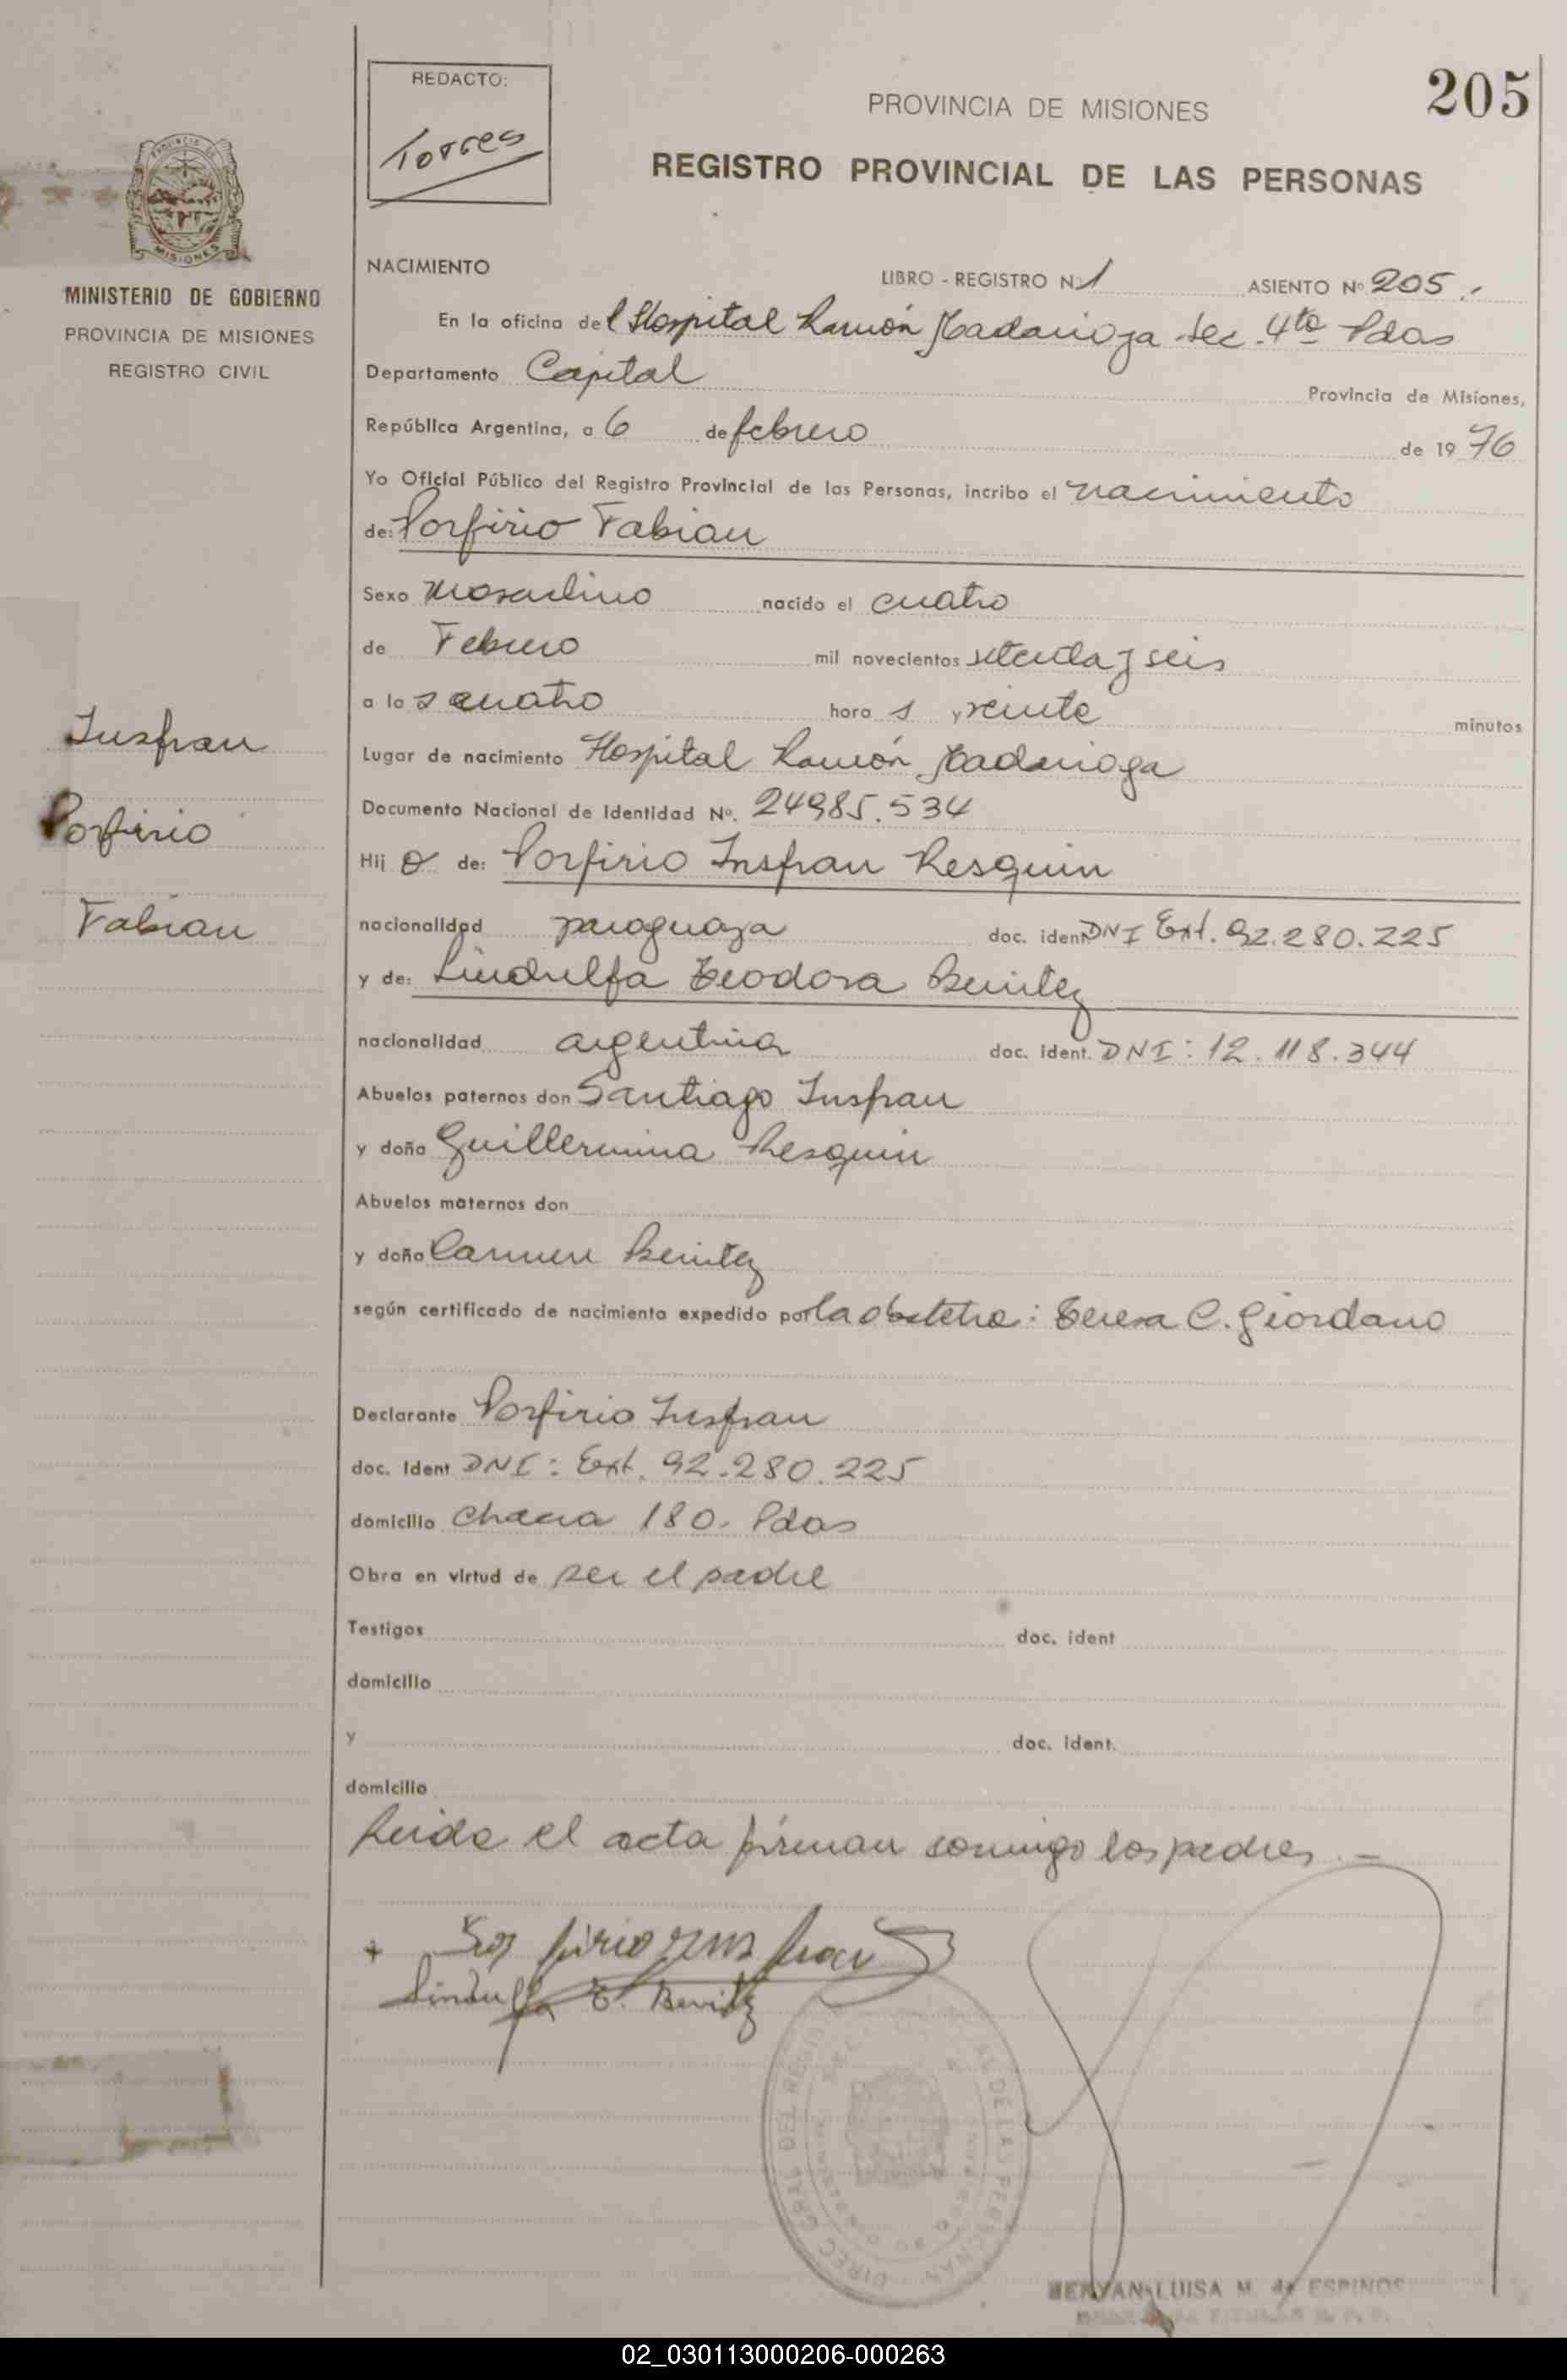 205
REDACTO:
Torres
PROVINCIA DE MISIONES
REGISTRO PROVINCIAL DE LAS PERSONAS
MISIONES
MINISTERIO DE GOBIERNO
PROVINCIA DE MISIONES
REGISTRO CIVIL
Insfran
Porfirio
Fabian
NACIMIENTO LIBRO - REGISTRO N: 1 ASIENTO Nº 205.-
En la oficina del Hospital Ramón Madariaga Sec. 4ta Pdas
Departamento Capital Provincia de Misiones,
República Argentina, a 6 de febrero de 1976
Yo Oficial Público del Registro Provincial de las Personas, incribo el nacimiento
de: Porfirio Fabian
Sexo masculino nacido el cuatro
de Febrero mil novecientos setenta y seis
a las cuatro horas y veinte minutos
Lugar de nacimiento Hospital Ramón Madariaga
Documento Nacional de Identidad Nº. 24985.534
Hijo de: Porfirio Insfran Resquin
nacionalidad paraguaya doc. ident DNI Ext. 92.280.225
y de: Lindulfa Teodora Benitez
nacionalidad argentina doc. ident. DNI: 12.118.344
Abuelos paternos don Santiago Insfran
y doña Guillermina Resquin
Abuelos maternos don
y doña Carmen Benitez
según certificado de nacimiento expedido por la obstetra: Teresa C. Giordano
Declarante Porfirio Insfran
doc. Ident DNI: Ext. 92.280.225
domicilio Chacra 180. Pdas
Obra en virtud de ser el padre
Testigos doc. ident
domicilio
y doc. ident.
domicilio
Leida el acta firman conmigo los padres.-
Lindulfa T. Benitez
LUISA M. de ESPINOS
02_030113000206-000263